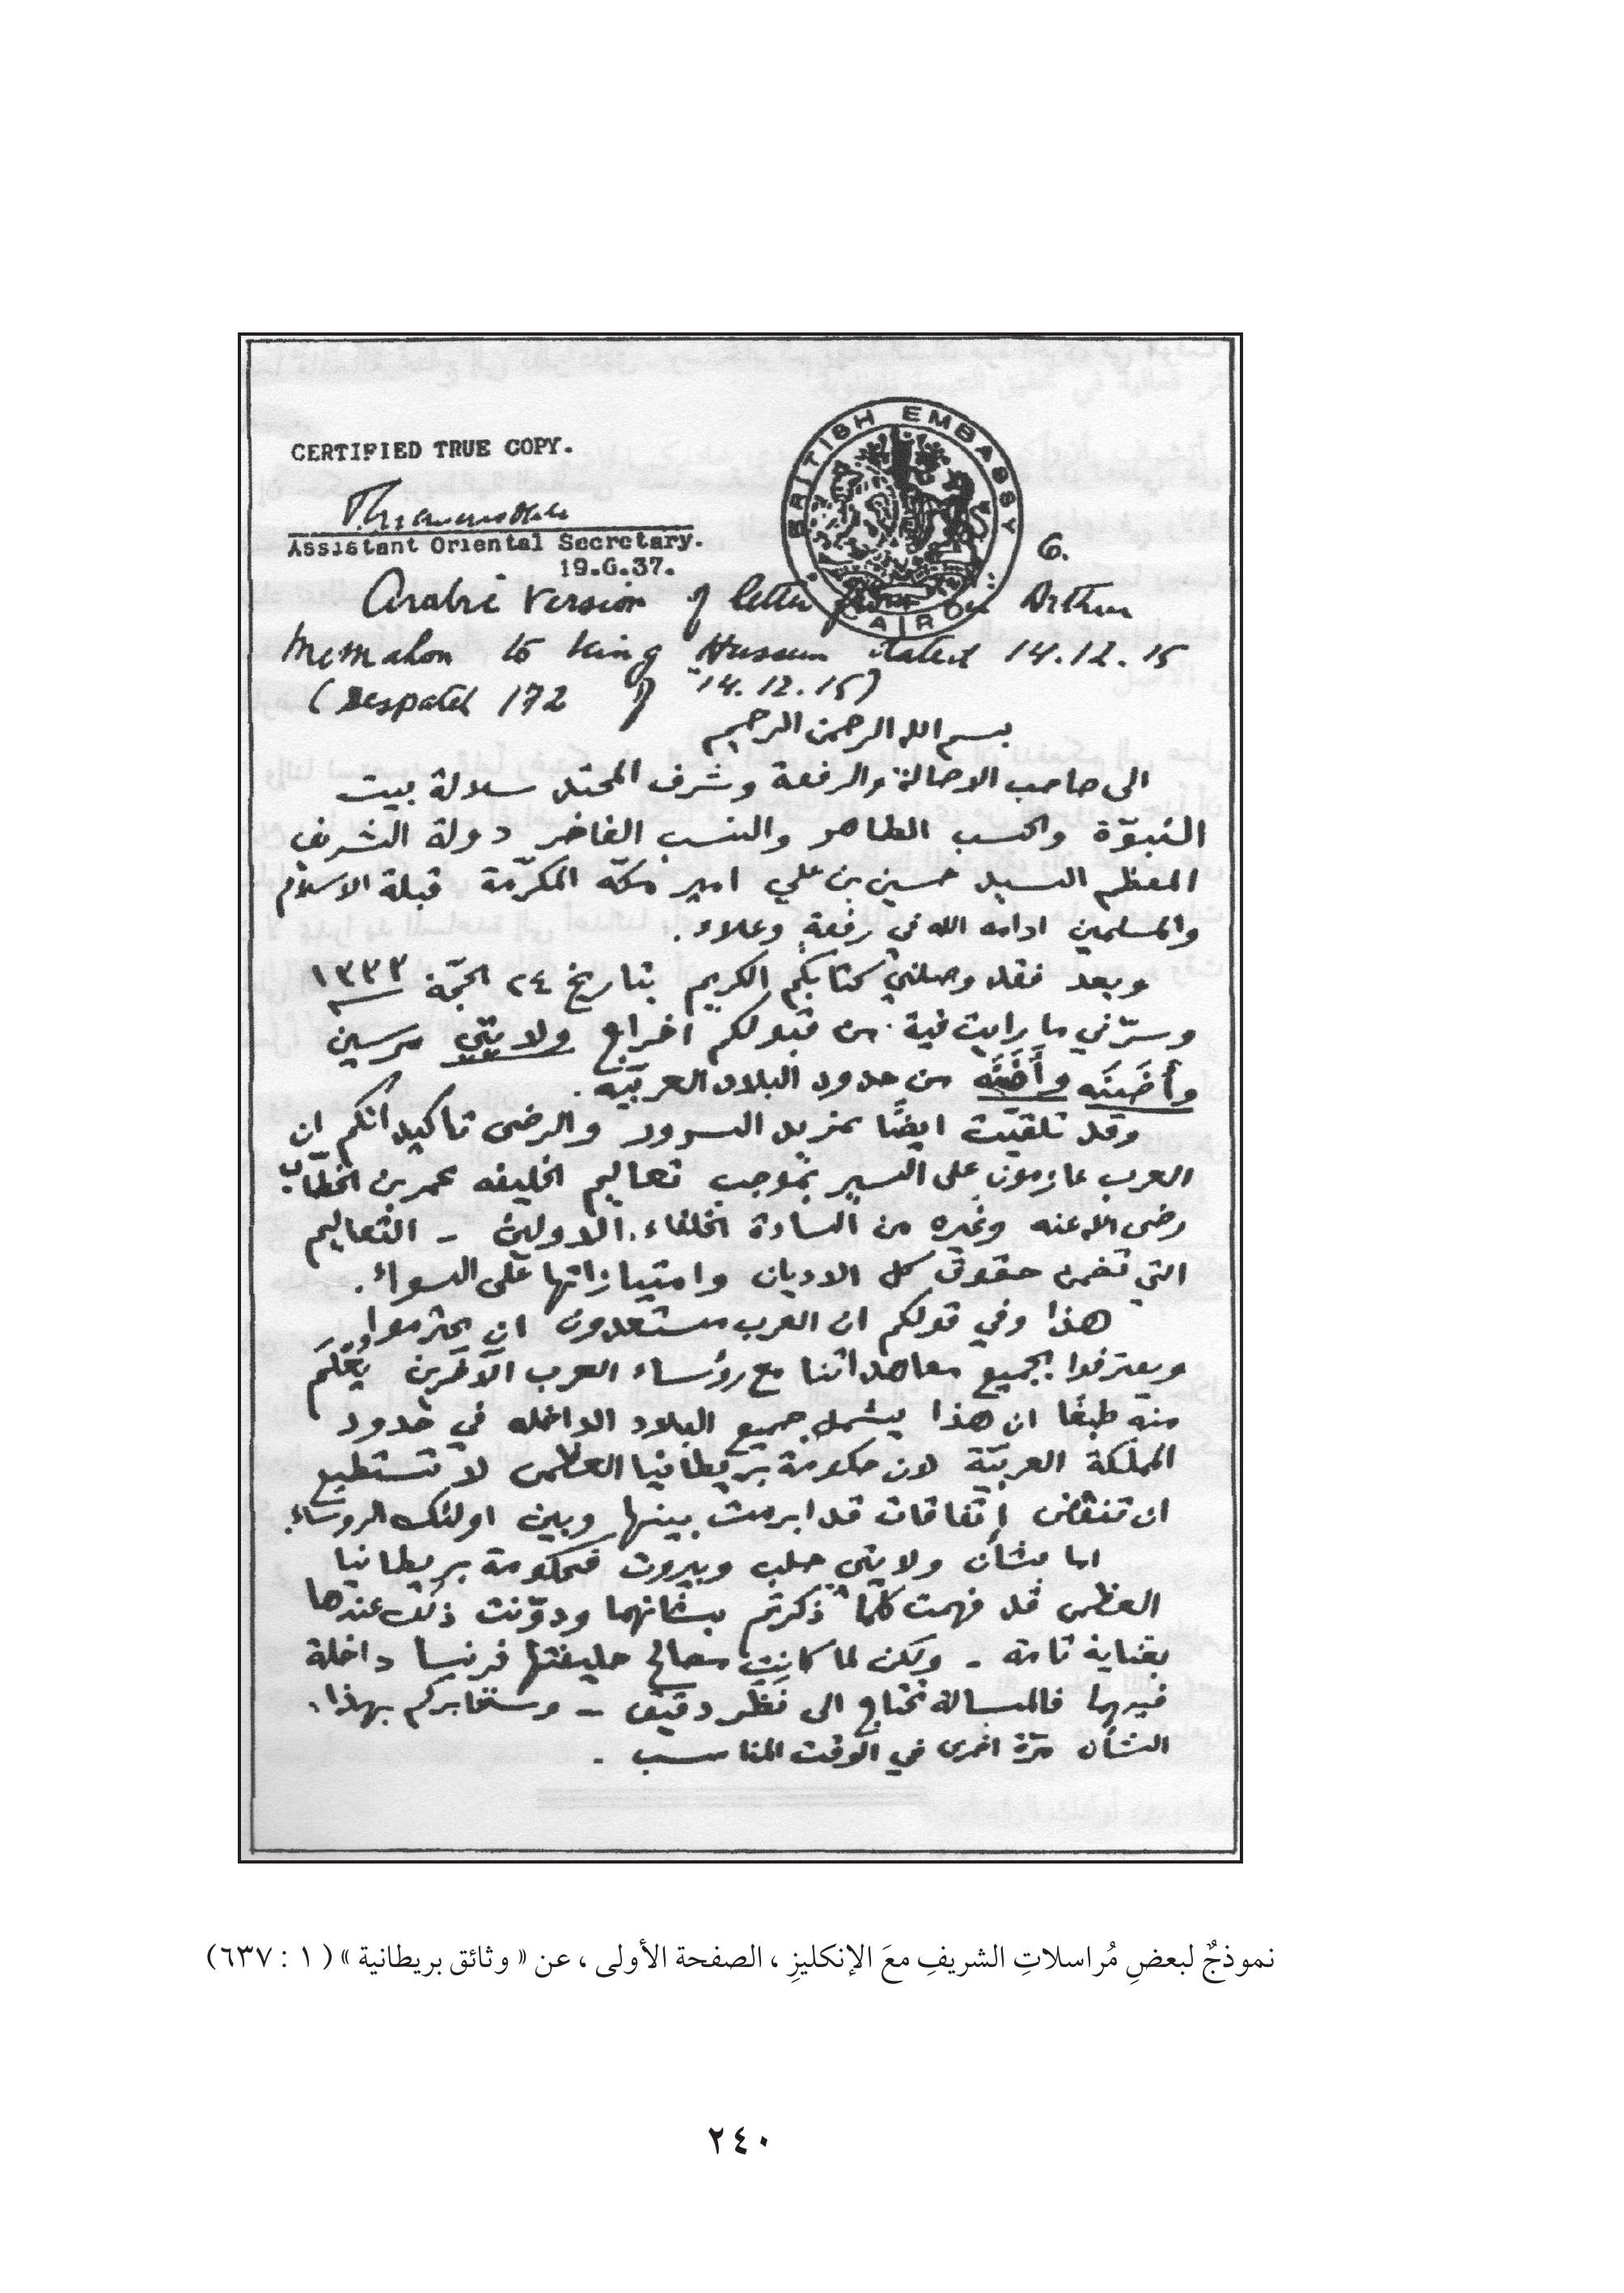 CERTIFIED TRUE COPY.
BRITISH EMBASSY
CAIRO
Assistant Oriental Secretary.
19.6.37.
6.
Arabic Version of letter from Sir Arthur
McMahon to King Hussein dated 14.12.15
(Despatch 172 of 14.12.15)
بسم الله الرحمن الرحيم
الى صاحب الاصالة والرفعة وشرف المحتد سلالة بيت
النبوّة والحسب الطاهر والنسب الفاخر دولة الشريف
المعظم السيد حسين بن علي امير مكّه المكرّمة قبلة الاسلام
والمسلمين ادامه الله في رفعة وعلاء .
وبعد فقد وصلني كتابكم الكريم بتاريخ ٢٤ الحجّة ١٣٣٣
وسرّني ما رايت فيه من قبولكم اخراج ولايتي مرسين
وأضَنَه وأَضَنَه من حدود البلاد العربيّه .
وقد تلقيّت ايضًا بمزيد السرور والرضى تاكيداتكم ان
العرب عازمون على السير بموجب تعاليم الخليفه عمر بن الخطّاب
رضى الله عنه وغيره من السادة الخلفاء الاولين - التعاليم
التي تضمن حقوق كل الاديان وامتيازاتها على السواء .
هذا وفي قولكم ان العرب مستعدون ان يحترموا
ويعترفوا بجميع معاهداتنا مع رؤساء العرب الآخرين يُعْلَم
منه طبعًا ان هذا يشمل جميع البلاد الداخله في حدود
المملكة العربيّة لان حكومة بريطانيا العظمى لا تستطيع
ان تنقض اتفاقات قد ابرمت بينها وبين اولئك الروساء .
اما بشأن ولايتي حلب وبيروت فحكومة بريطانيا
العظمى قد فهمت كلّما ذكرتم بشانهما ودوّنت ذلك عندها
بعناية تامة - ولكن لما كانت مصالح حليفتها فرنسا داخلة
فيهما فالمسالة تحتاج الى نظر دقيق - وسنخابركم بهذا
الشأن مرّة اخرى في الوقت المناسب .
نموذجٌ لبعضِ مُراسلاتِ الشريفِ معَ الإنكليزِ ، الصفحة الأولى ، عن « وثائق بريطانية » ( ١ : ٦٣٧ )
٢٤٠